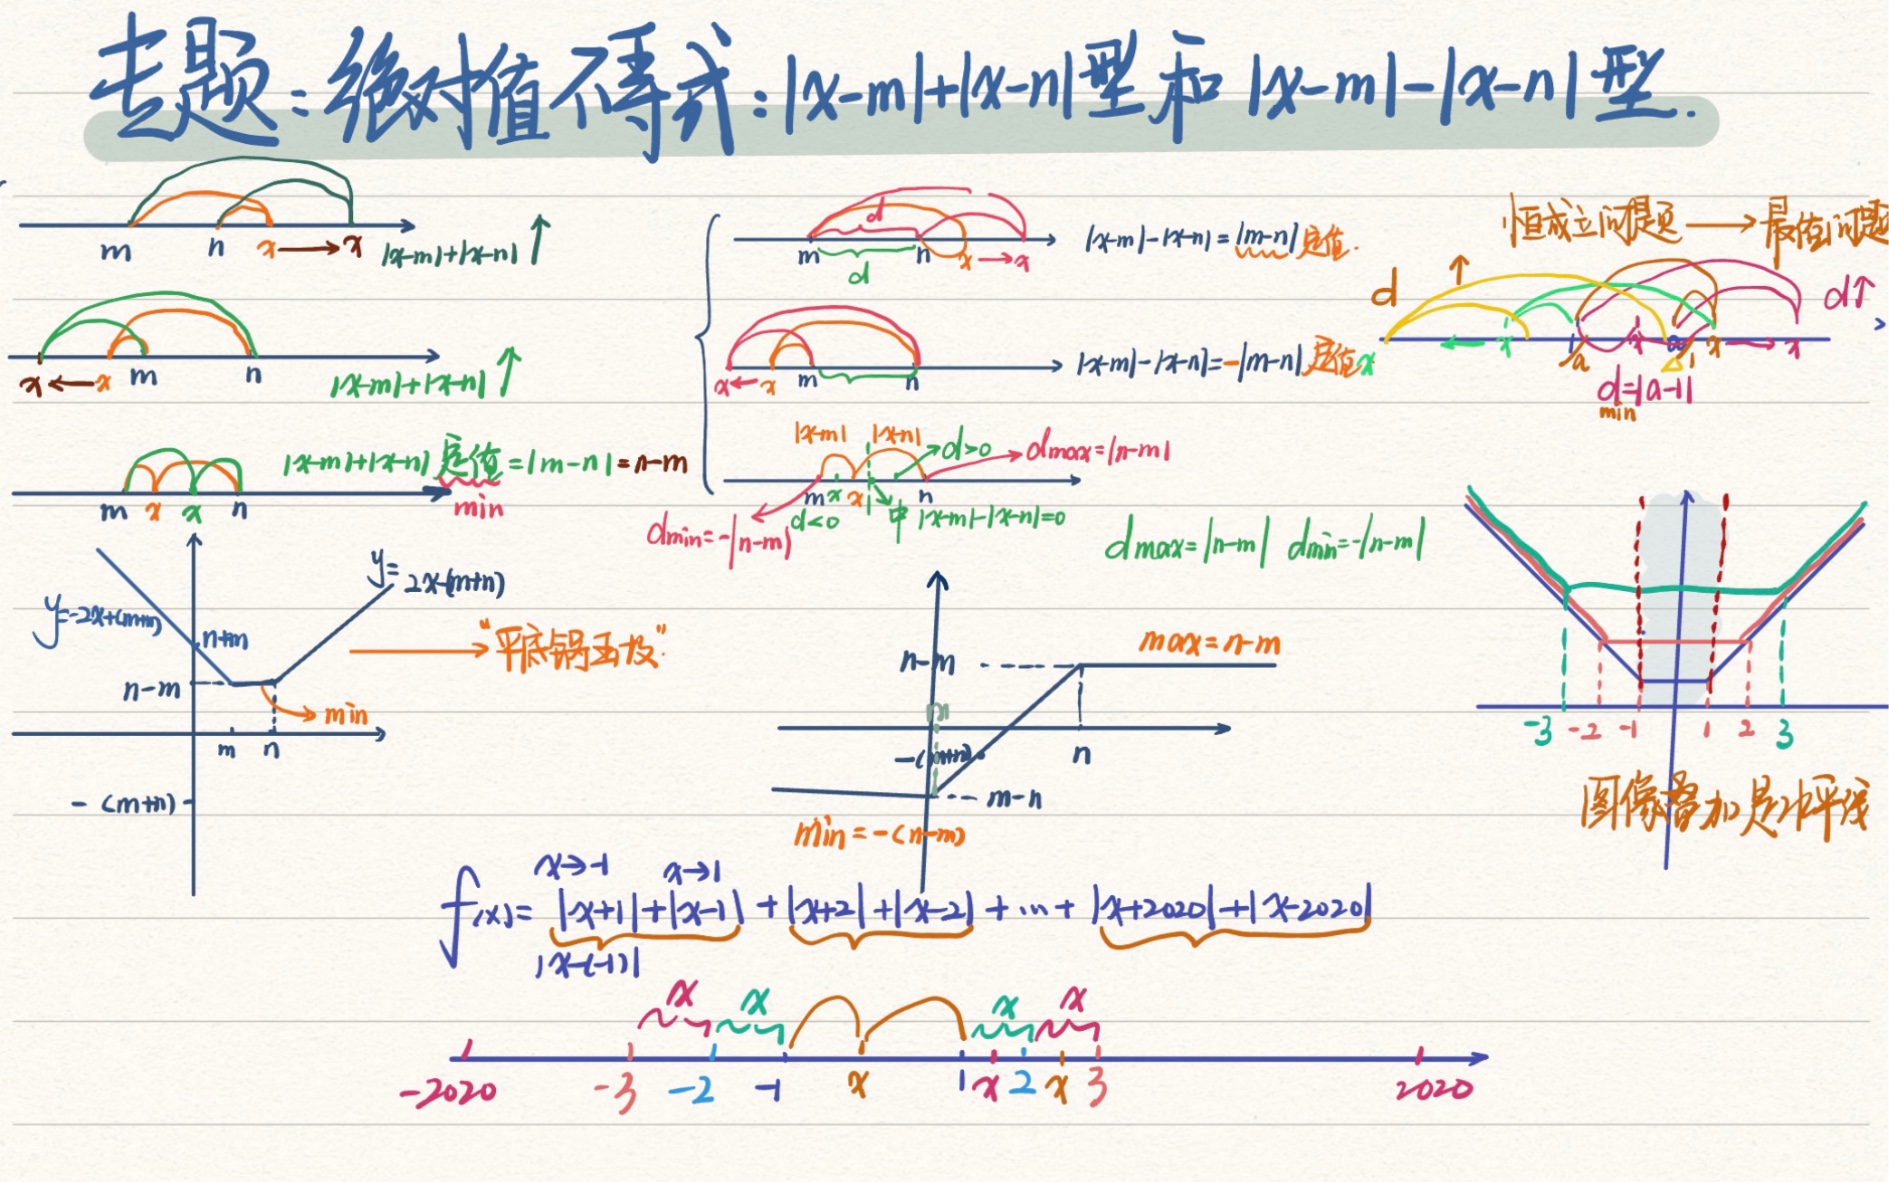 专题：绝对值不等式：|x-m|+|x-n|型和 |x-m|-|x-n|型.
m n x x |x-m|+|x-n| ↑
x x m n |x-m|+|x-n| ↑
|x-m|+|x-n| 定值=|m-n|=n-m
min
m x x n
d
m n x x
d
|x-m|-|x-n|=|m-n|定值.
x x m n
|x-m|-|x-n|=-|m-n|定值
|x-m| |x-n| d>0 dmax=|n-m|
m x x n
dmin=-|n-m| d<0 中 |x-m|-|x-n|=0
dmax=|n-m| dmin=-|n-m|
恒成立问题→最值问题
d ↑ d↑
x x a x 1 x x
d=|a-1|
min
y=-2x+(m+n)
y=2x-(m+n)
n+m
"平底锅函数"
n-m
min
m n
-(m+n)
n-m
max=n-m
m
-(m+n)
n
m-n
min=-(n-m)
-3 -2 -1 1 2 3
图像叠加是水平线
x→-1 x→1
f(x)=|x+1|+|x-1|+|x+2|+|x-2|+…+|x+2020|+|x-2020|
|x-(-1)|
x x x x
-2020 -3 -2 -1 x 1 x 2 x 3 2020